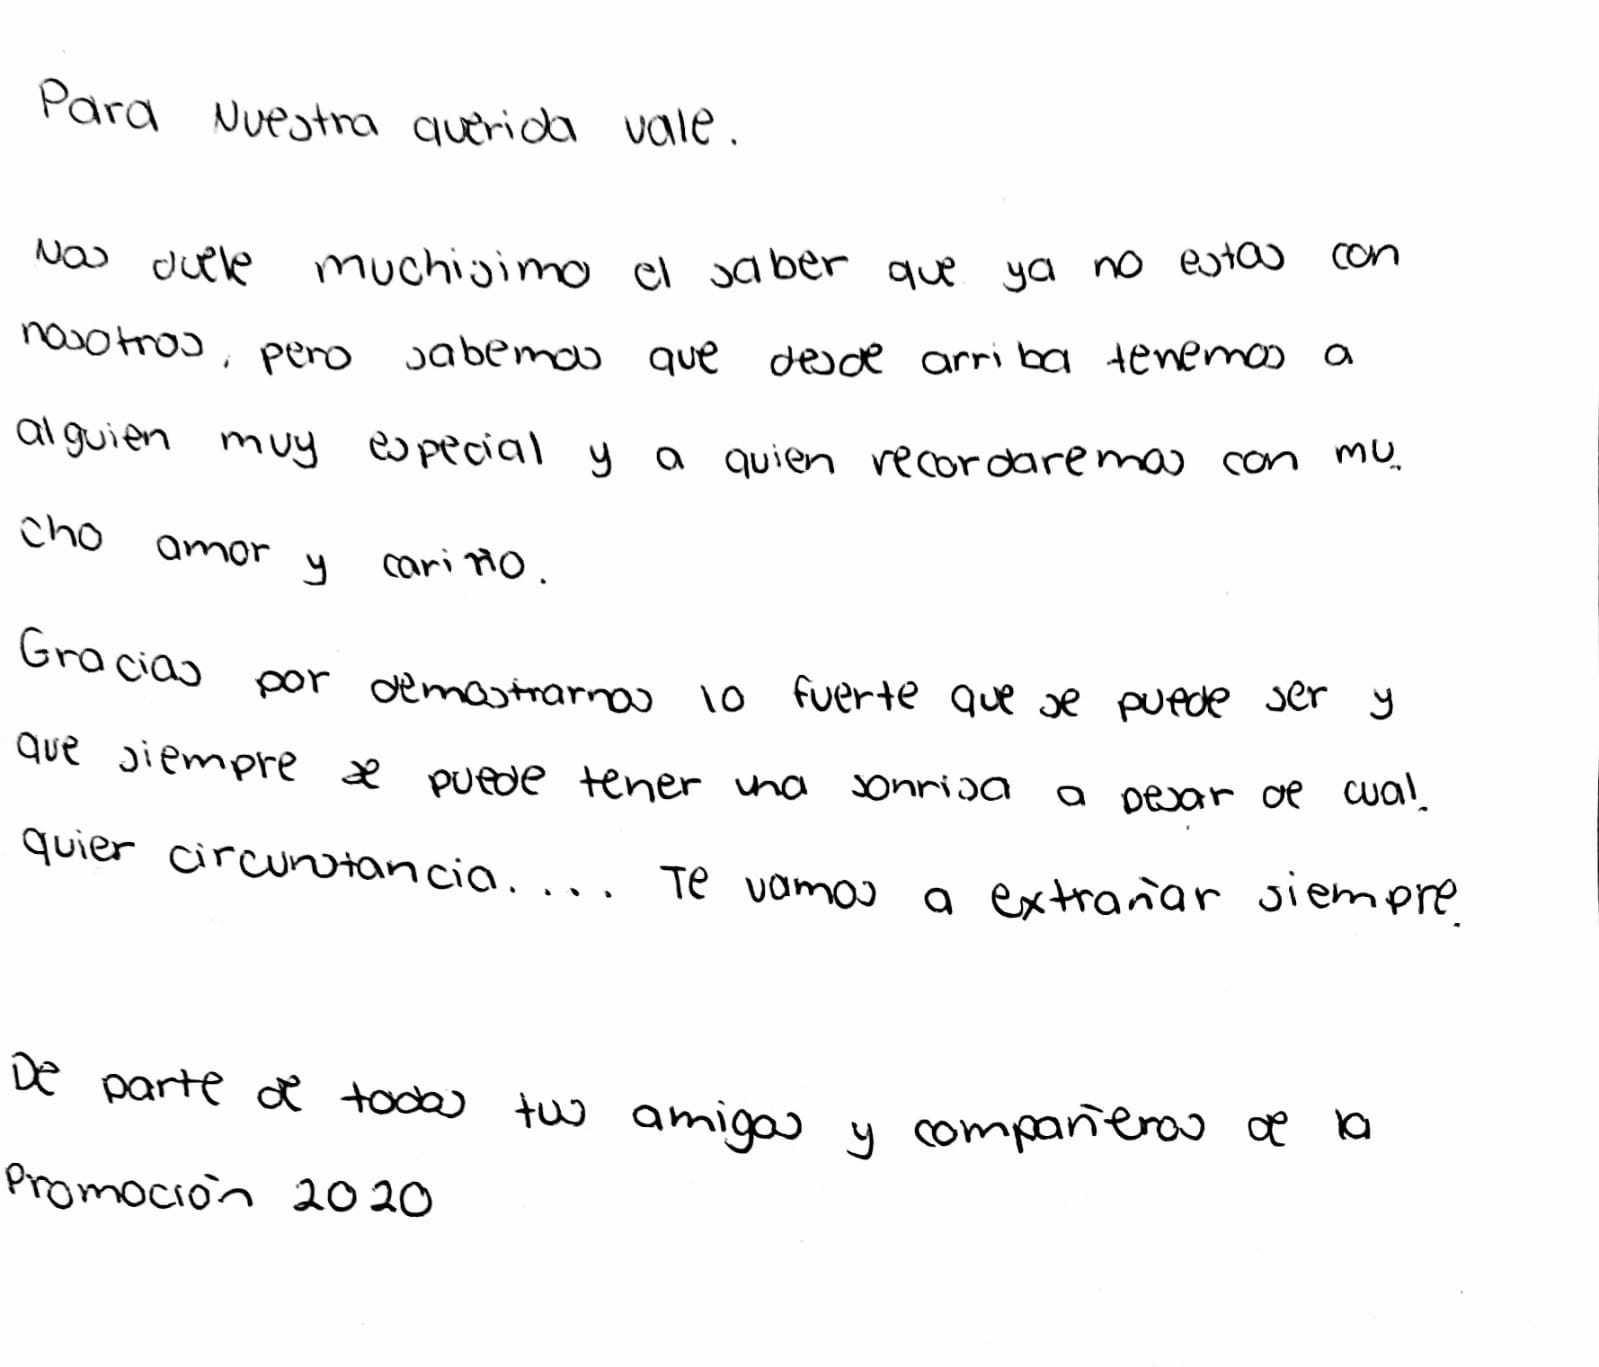 Para Nuestra querida vale.
Nos duele muchisimo el saber que ya no estas con
nosotros, pero sabemos que desde arriba tenemos a
alguien muy especial y a quien recordaremos con mu..
cho amor y cariño.
Gracias por demostrarnos lo fuerte que se puede ser y
que siempre se puede tener una sonrisa a pesar de cual..
quier circunstancia.... Te vamos a extrañar siempre.
De parte de todos tus amigos y compañeros de la
Promoción 2020